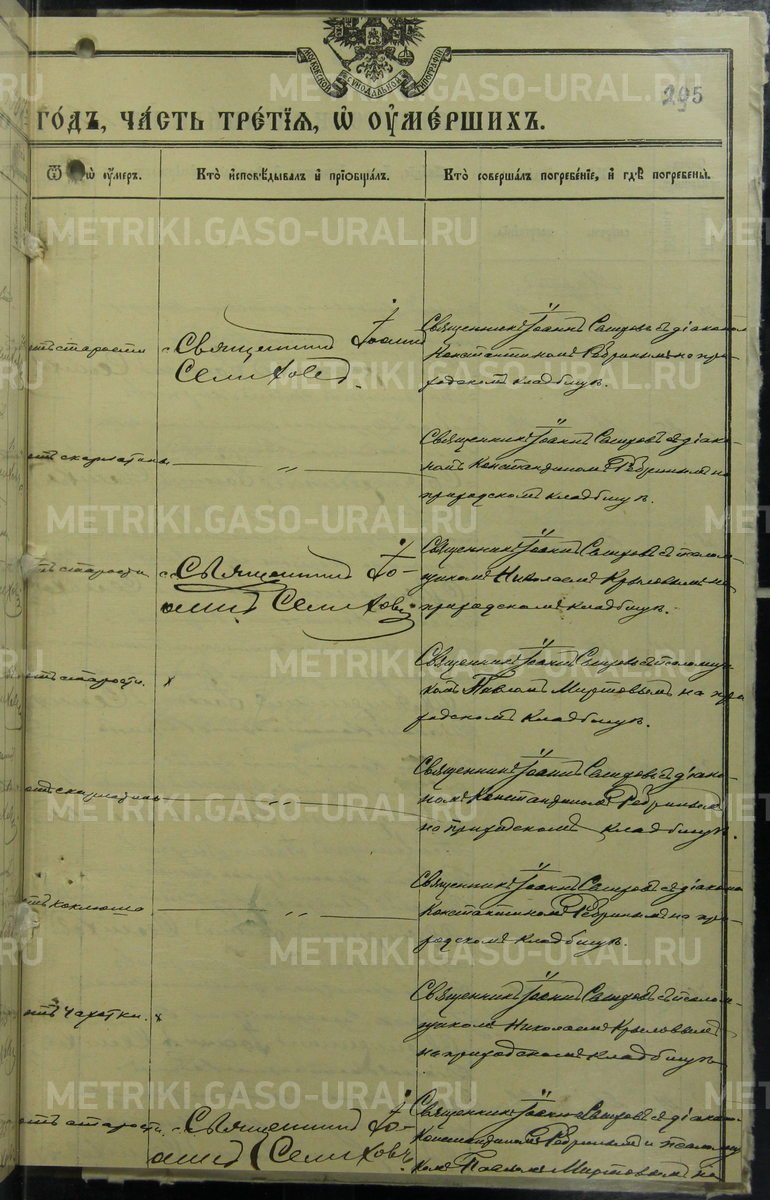 МОСКОВСКОЙ СѴНОДАЛЬНОЙ ТИПОГРАФІИ
METRIKI.GASO-URAL.RU
295
го́дъ, ча́сть тре́тїѧ, ѡ҆ ᲂу҆ме́ршихъ.
ѡ҆ ᲂу҆ме́ръ.
Кто̀ и҆сповѣ́дывалъ и҆ прїѡбща́лъ.
Кто̀ соверша́лъ погребе́нїе, и҆ гдѣ̀ погребены̀.
отъ старости
Священникъ Іоаннъ
Священникъ Іоаннъ Сапаровъ съ діакономъ
Константиномъ Ребринымъ на при-
родскомъ кладбищѣ.
отъ скарлатины
— „ —
Священникъ Іоаннъ Сапаровъ съ діако-
номъ Константиномъ Ребринымъ на
пригородскомъ кладбищѣ.
отъ старости
Священникъ Іо-
аннъ
Священникъ Іоаннъ Сапаровъ съ псалом-
щикомъ Николаемъ Крыловымъ на
пригородскомъ кладбищѣ.
отъ старости. x
Священникъ Іоаннъ Сапаровъ съ псаломщи-
комъ Павломъ Миртовымъ на при
родскомъ кладбищѣ.
отъ скарлатины
— „ —
Священникъ Іоаннъ Сапаровъ съ діако-
номъ Константиномъ Ребринымъ
на пригородскомъ кладбищѣ.
отъ коклюша
— „ —
Священникъ Іоаннъ Сапаровъ съ діакономъ
Константиномъ Ребринымъ на при-
родскомъ кладбищѣ.
отъ чахотки. x
Священникъ Іоаннъ Сапаровъ съ псалом-
щикомъ Николаемъ Крыловымъ
на пригородскомъ кладбищѣ
отъ старости.
Священникъ Іо-
аннъ
Священникъ Іоаннъ Сапаровъ съ діако-
Константиномъ Ребринымъ и псаломщи
комъ Павломъ Миртовымъ на